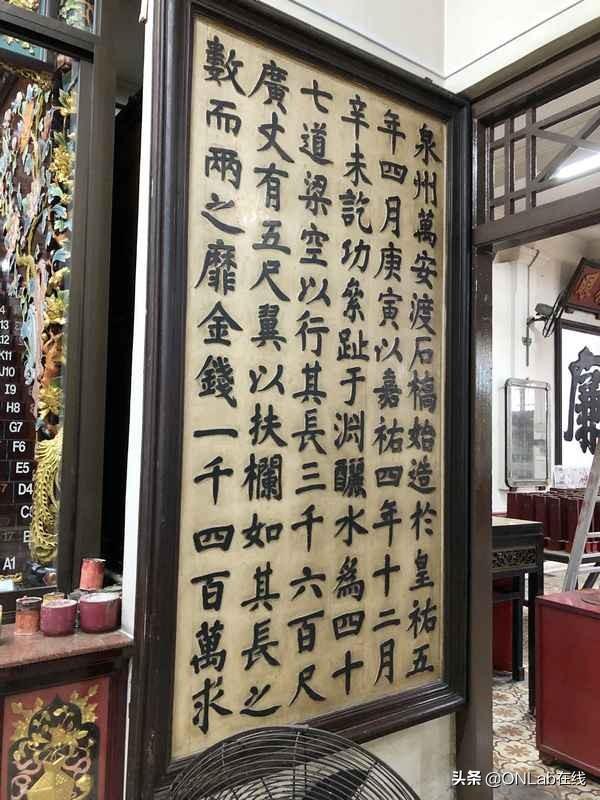 泉州萬安渡石橋始造於皇祐五
年四月庚寅以嘉祐四年十二月
辛未訖功絫趾于淵釃水爲四十
七道梁空以行其長三千六百尺
廣丈有五尺翼以扶欄如其長之
數而兩之靡金錢一千四百萬求
K11
J10
I9
H8
G7
F6
E5
D4
A1
头条 @ONLab在线